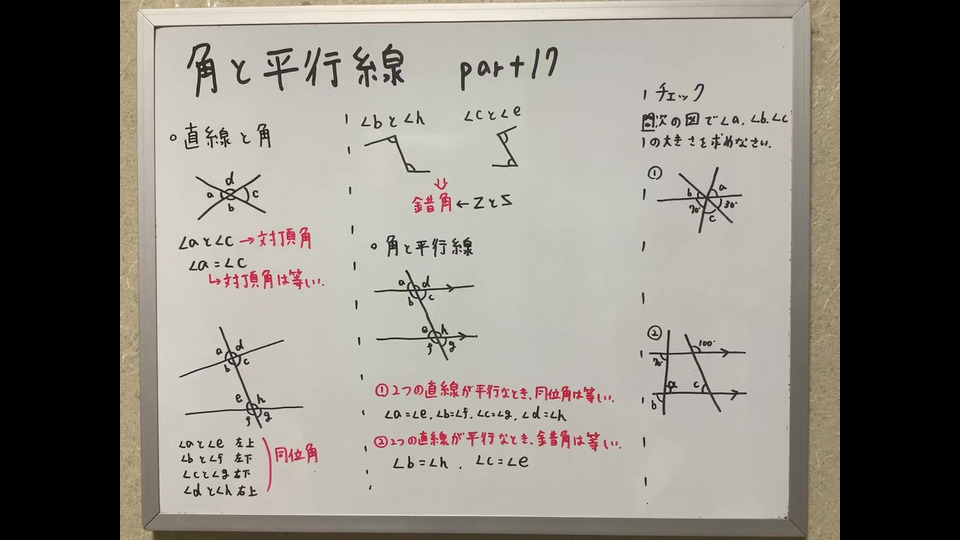 角と平行線 part17
○直線と角
a d c b
∠aと∠c→対頂角
∠a=∠c
↳対頂角は等しい.
a d b c
e h f g
∠aと∠e 左上
∠bと∠f 左下
∠cと∠g 右下
∠dと∠h 右上
同位角
∠bと∠h ∠cと∠e
錯角←ZとS
○角と平行線
a d b c
e h f g
①2つの直線が平行なとき、同位角は等しい.
∠a=∠e, ∠b=∠f, ∠c=∠g, ∠d=∠h
②2つの直線が平行なとき、錯角は等しい.
∠b=∠h, ∠c=∠e
チェック
問次の図で∠a, ∠b, ∠c
の大きさを求めなさい.
①
b a
70° 30°
c
②
100°
70°
a c
b